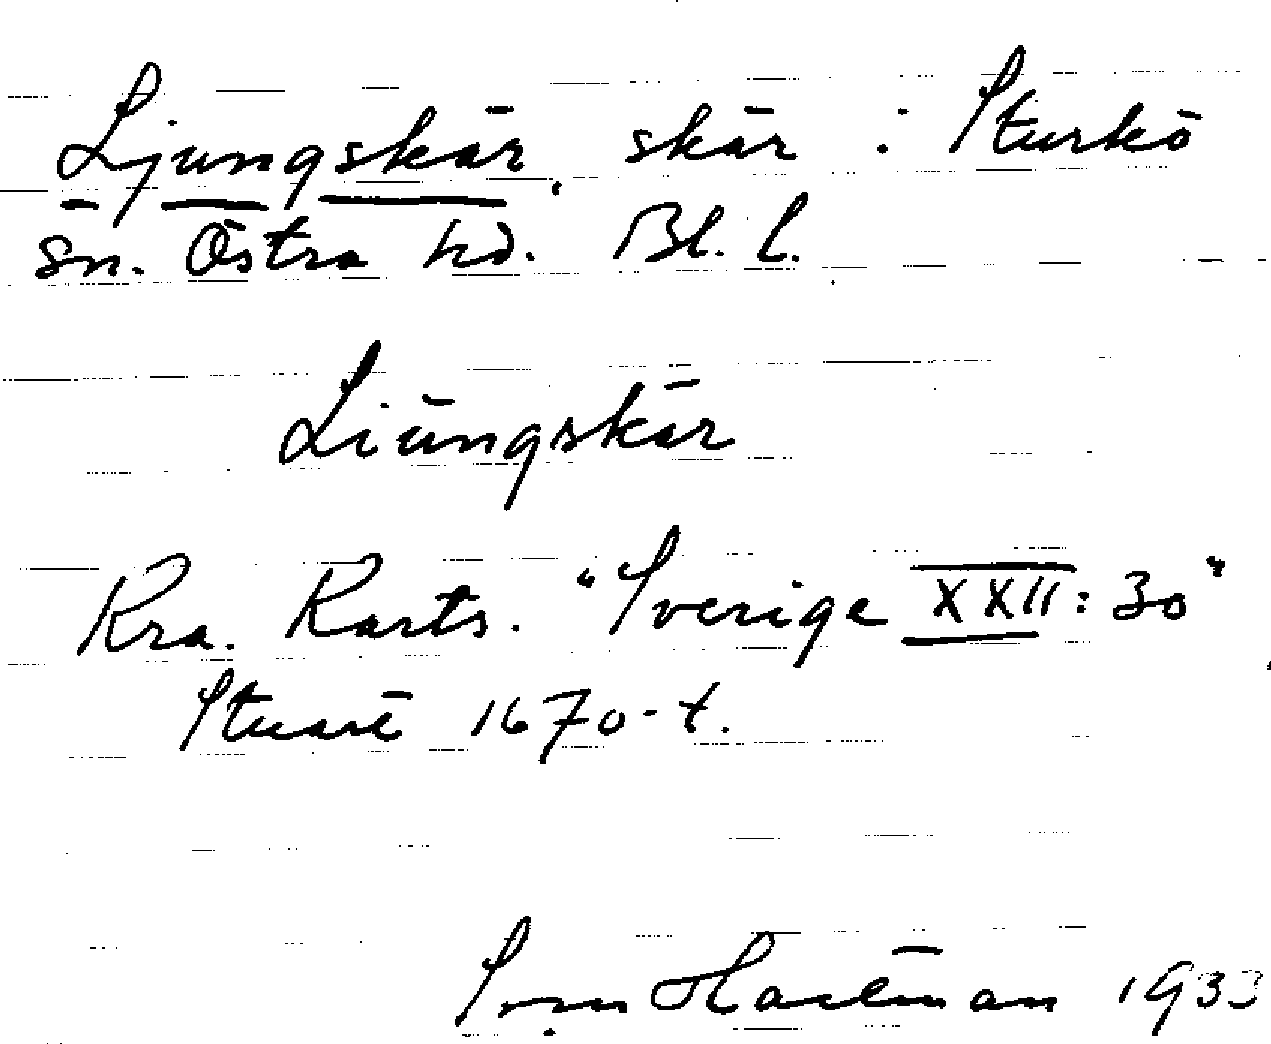 Ljungskär, skär i Sturkö
sn. Östra hd. Bl. l.
Liungskär
Kra. Karts. "Sverige XXII: 30"
Stuart 1670-t.
Sven Hartman 1933